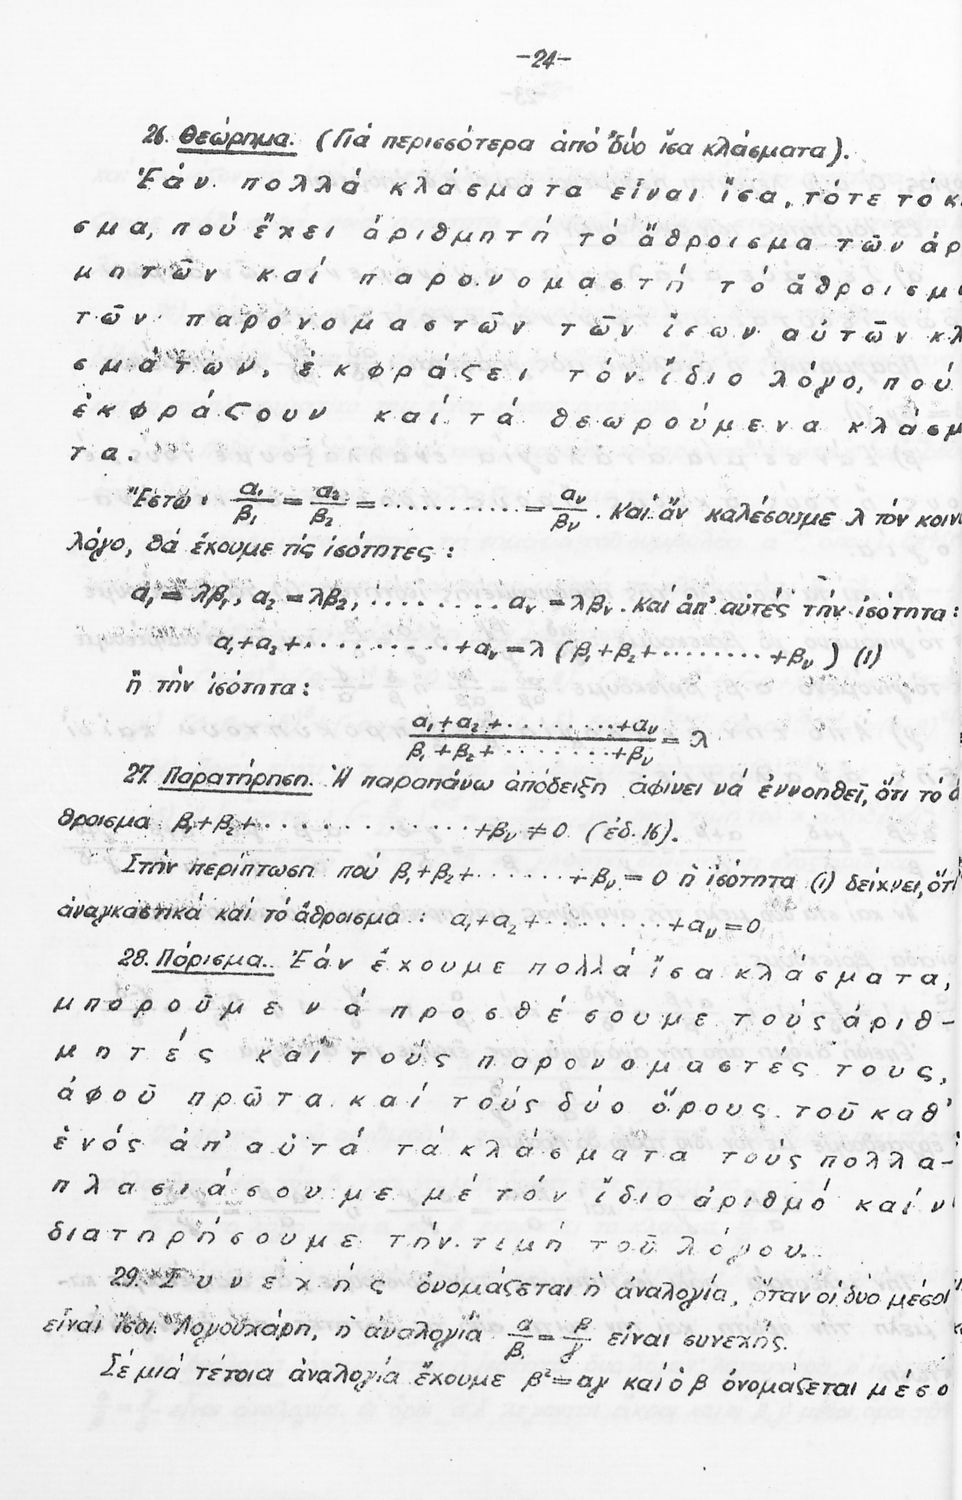 -24-
26. Θεώρημα. (Γιά περισσότερα ἀπό δύο ἴσα κλάσματα).
Ἐάν πολλά κλάσματα εἶναι ἴσα, τότε τό κ
σμα, πού ἔχει ἀριθμητή τό ἄθροισμα τῶν ἀρ
μητῶν καί παρονομαστή τό ἄθροισμ
τῶν παρονομαστῶν τῶν ἴσων αὐτῶν κλ
σμάτων, ἐκφράζει τόν ἴδιο λόγο, πού
ἐκφράζουν καί τά θεωρούμενα κλάσμ
τα.
Ἔστω: α₁/β₁ = α₂/β₂ = ........... = αν/βν. Καί ἄν καλέσουμε λ τόν κοιν
λόγο, θά ἔχουμε τίς ἰσότητες:
α₁=λβ₁, α₂=λβ₂, ......... αν=λβν. Καί ἀπ' αὐτές τήν ἰσότητα:
α₁+α₂+ .......... +αν=λ(β₁+β₂+ ........ +βν) (1)
ἤ τήν ἰσότητα:
(α₁+α₂+ ......... +αν)/(β₁+β₂+ ........ +βν) = λ
27. Παρατήρηση. Ἡ παραπάνω ἀπόδειξη ἀφίνει νά ἐννοηθεῖ, ὅτι τό ἄ
θροισμα β₁+β₂+ ............ +βν≠0 (ἐδ. 16).
Στήν περίπτωση πού β₁+β₂+ ....... +βν=0 ἡ ἰσότητα (1) δείχνει, ὅτι
ἀναγκαστικά καί τό ἄθροισμα: α₁+α₂+ ........ +αν=0
28. Πόρισμα. Ἐάν ἔχουμε πολλά ἴσα κλάσματα,
μποροῦμε νά προσθέσουμε τούς ἀριθ-
μητές καί τούς παρονομαστές τους,
ἀφοῦ πρῶτα καί τούς δύο ὅρους τοῦ καθ'
ἑνός ἀπ' αὐτά τά κλάσματα τούς πολλα-
πλασιάσουμε μέ τόν ἴδιο ἀριθμό καί ν
διατηρήσουμε τήν τιμή τοῦ λόγου.
29. Συνεχής ὀνομάζεται ἡ ἀναλογία, ὅταν οἱ δύο μέσοι
εἶναι ἴσοι. Λογουχάρη, ἡ ἀναλογία α/β = β/γ εἶναι συνεχής.
Σέ μιά τέτοια ἀναλογία ἔχουμε β²=αγ καί ὁ β ὀνομάζεται μέσο